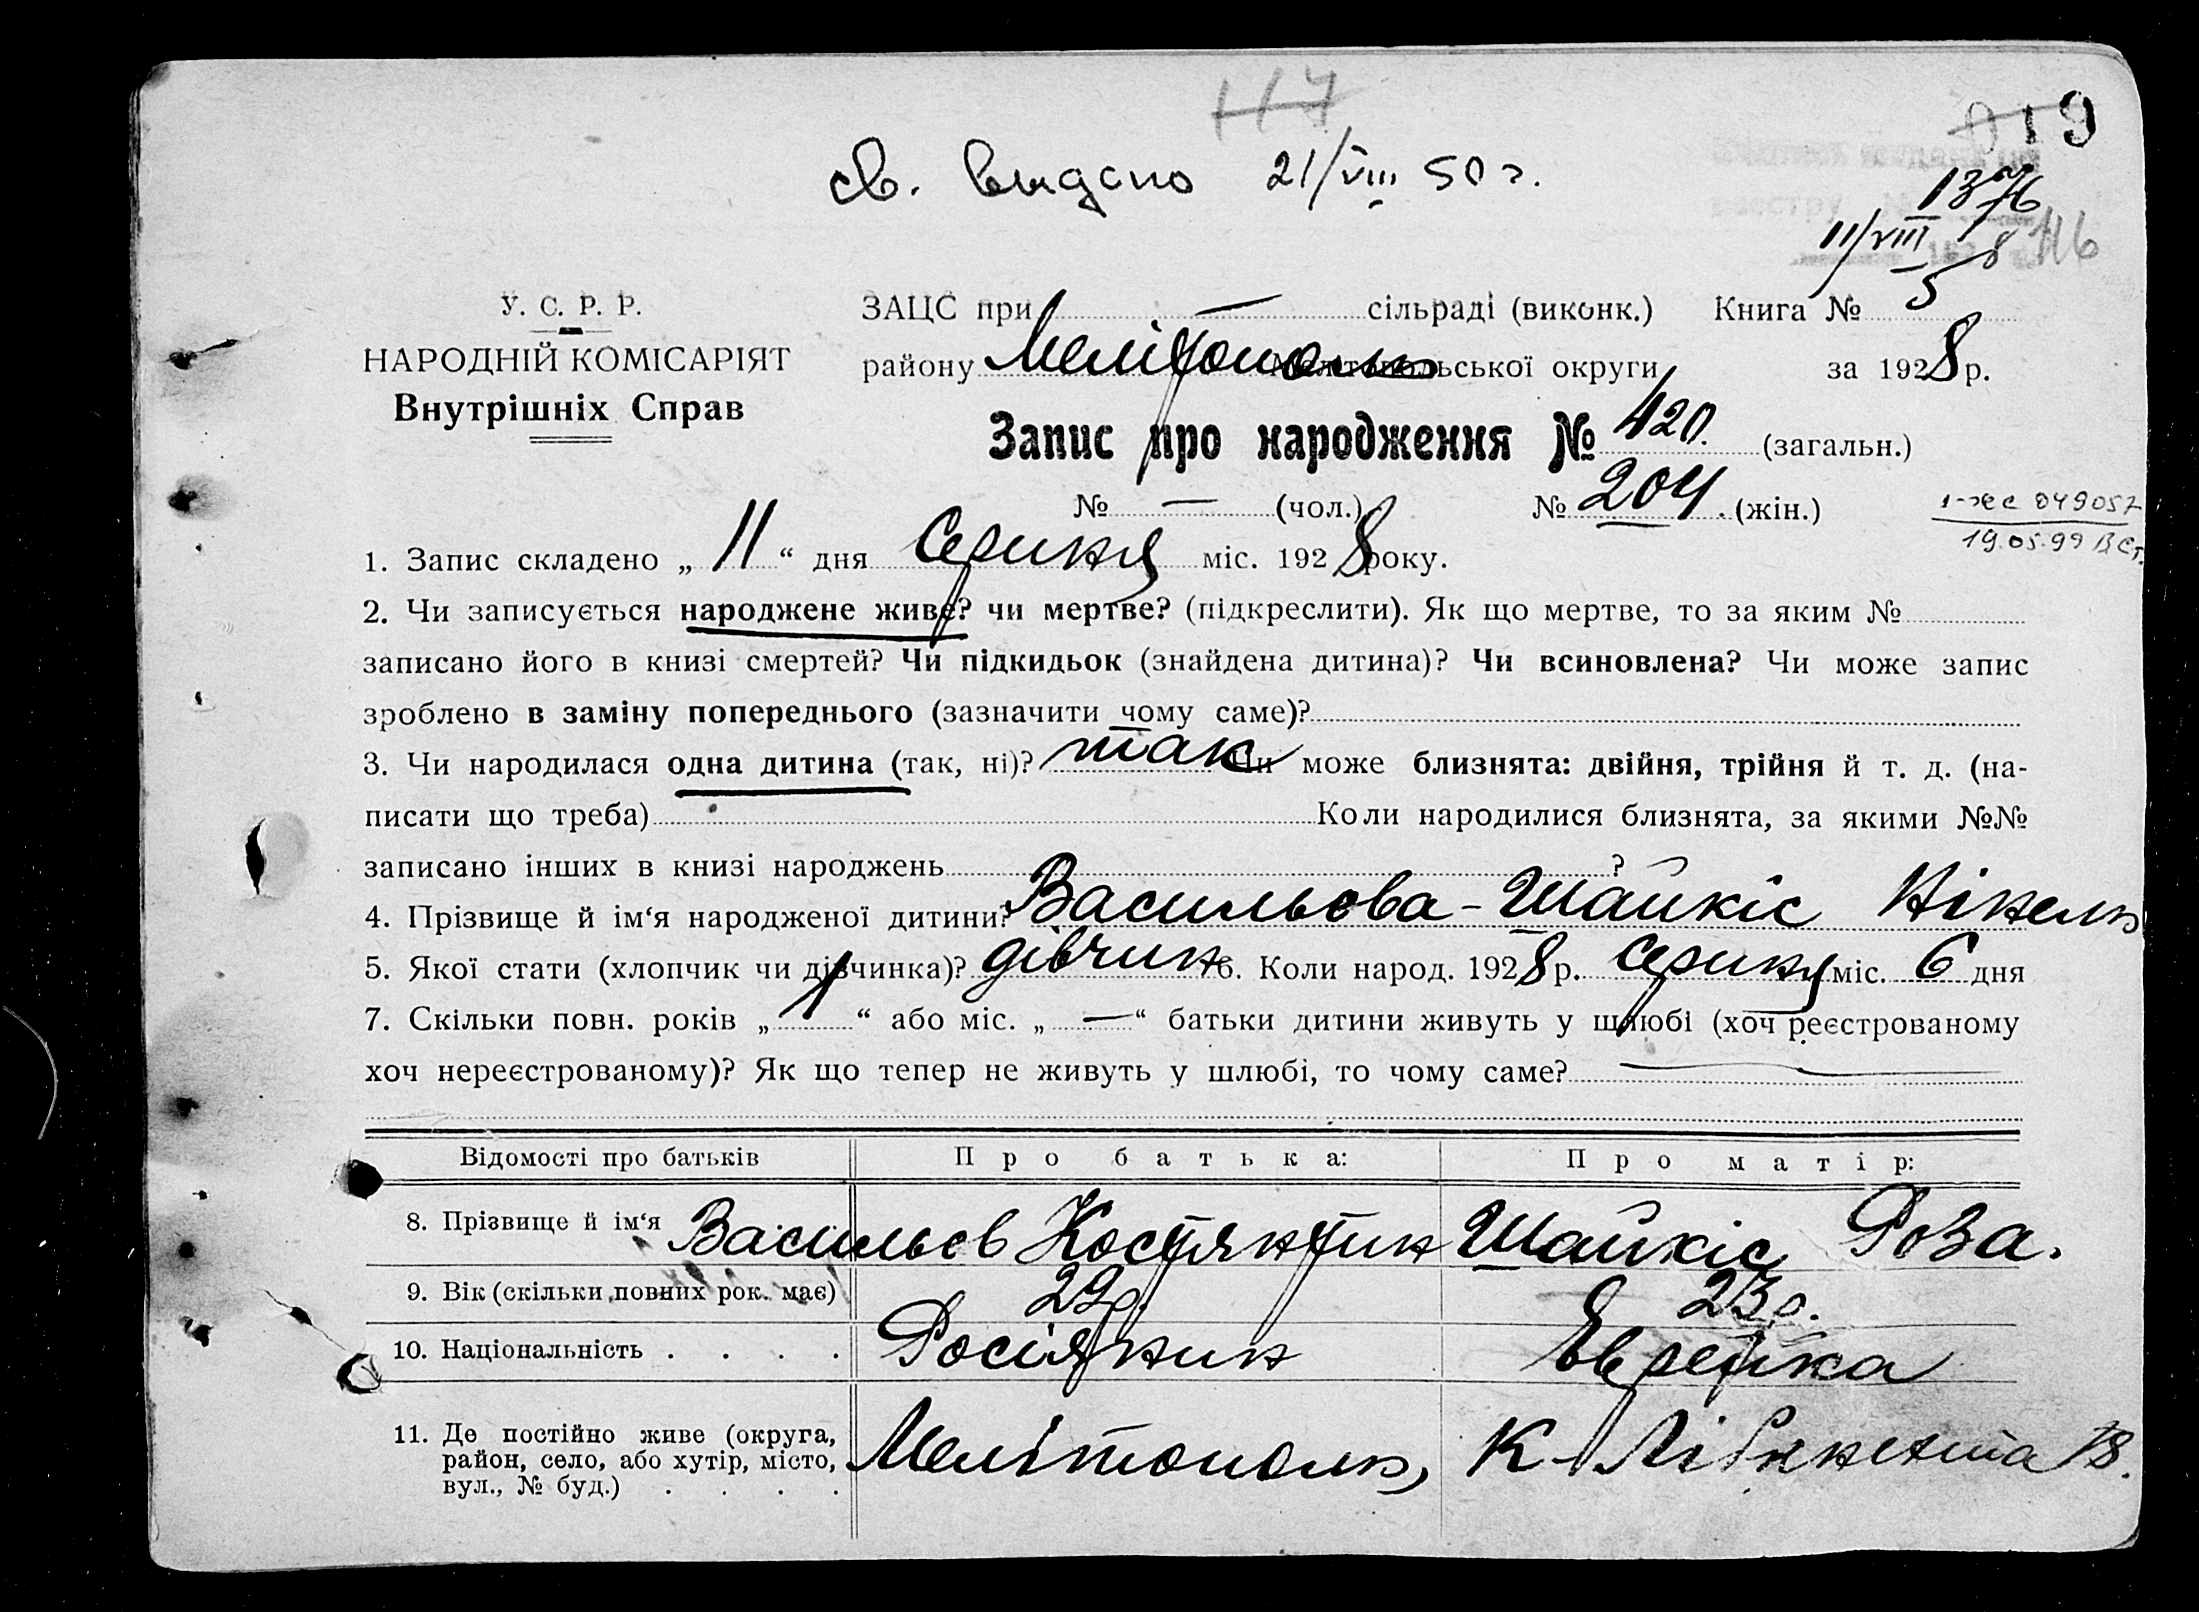 117
019
св. видано 21/VIII 50 г.
1376
11/VIII 58
116
У. С. Р. Р.
НАРОДНІЙ КОМІСАРІЯТ
Внутрішніх Справ
ЗАЦС при — сільраді (виконк.) Книга №
району Мелітополь Мелітопольської округи за 1928 р.
Запис про народження № 420. (загальн.)
№ — (чол.) № 204 (жін.)
1-жс 049057
19.05.99
1. Запис складено „ 11 “ дня Серпня міс. 1928 року.
2. Чи записується народжене живе? чи мертве? (підкреслити). Як що мертве, то за яким №
записано його в книзі смертей? Чи підкидьок (знайдена дитина)? Чи всиновлена? Чи може запис
зроблено в заміну попереднього (зазначити чому саме)?
3. Чи народилася одна дитина (так, ні)? так Чи може близнята: двійня, трійня й т. д. (на-
писати що треба) Коли народилися близнята, за якими №№
записано інших в книзі народжень ?
4. Прізвище й ім‘я народженої дитини? Васильєва-Шайкіс Нінель
5. Якої стати (хлопчик чи дівчинка)? дівчин 6. Коли народ. 1928 р. Серпня міс. 6 дня
7. Скільки повн. років „ 1 “ або міс. „ — “ батьки дитини живуть у шлюбі (хоч реєстрованому
хоч нереєстрованому)? Як що тепер не живуть у шлюбі, то чому саме? —
Відомості про батьків Про батька: Про матір:
8. Прізвище й ім‘я Васильєв Костянтин Шайкіс Роза.
9. Вік (скільки повних рок. має) 29р. 23р.
10. Національність . . . . Росіянин Єврейка
11. Де постійно живе (округа,
район, село, або хутір, місто,
вул., № буд.) . . . . Мелітополь, К-Лібкнехта 78.